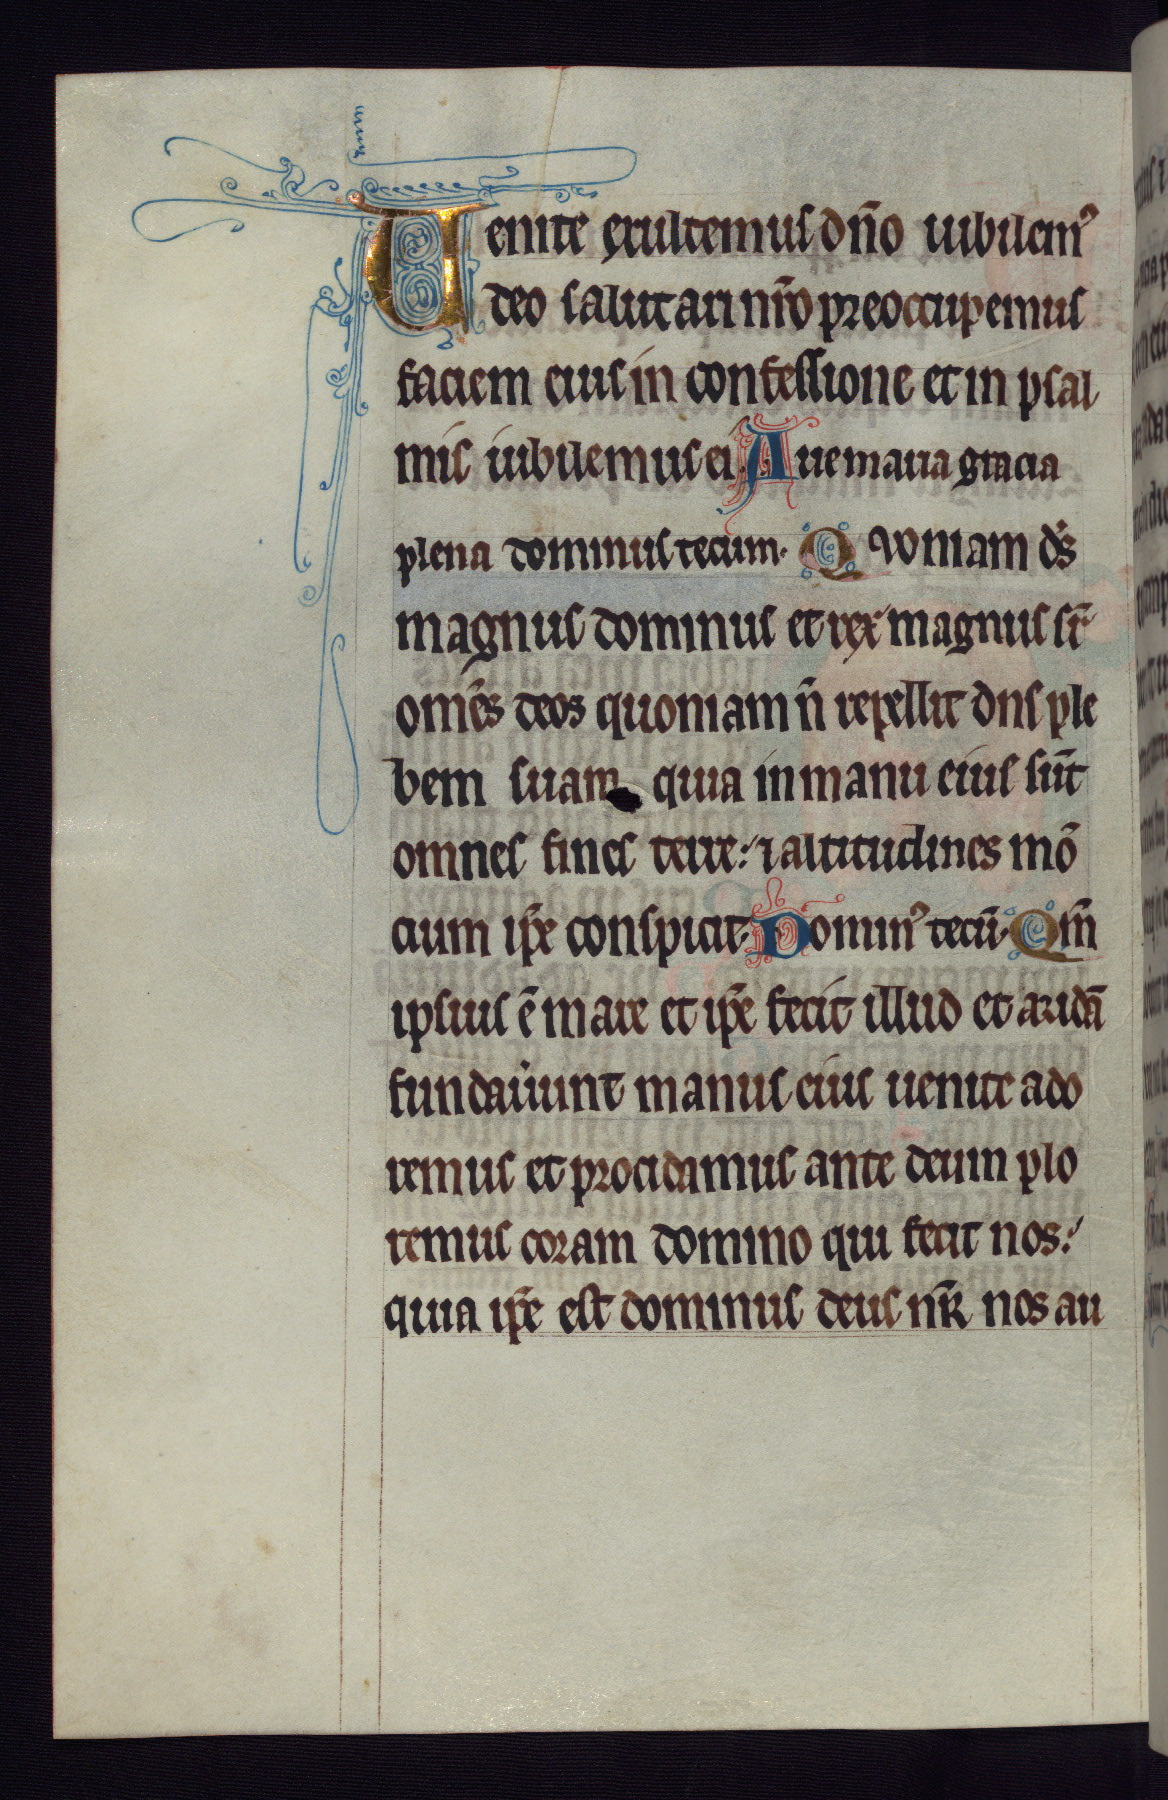 Uenite exultemus dño iubilem⁹
deo salutari nr̄o preoccupemus
faciem eius in confessione et in psal
mis iubilemus ei. Aue maria gracia
plena dominus tecum. Quoniam ds̄
magnus dominus et rex magnus sr̄
om̄es deos quoniam n̄ repellit dn̄s ple
bem suam quia in manu eius sūt
omnes fines terre: ⁊ altitudines mō
cium ip̄e conspicit. Domin⁹ tecū. Qm̄
ipsius ē mare et ip̄e fecit illud et aridā
fundauūnt manus eius uenite ado
remus et procidamus ante deum plo
remus coram domino qui fecit nos:
quia ip̄e est dominus deus nr̄ nos au